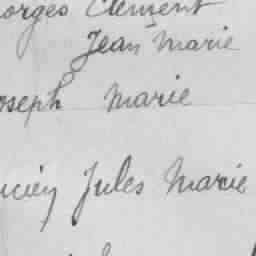 orges Clement
Jean Marie
oseph Marie
ucien Jules Marie